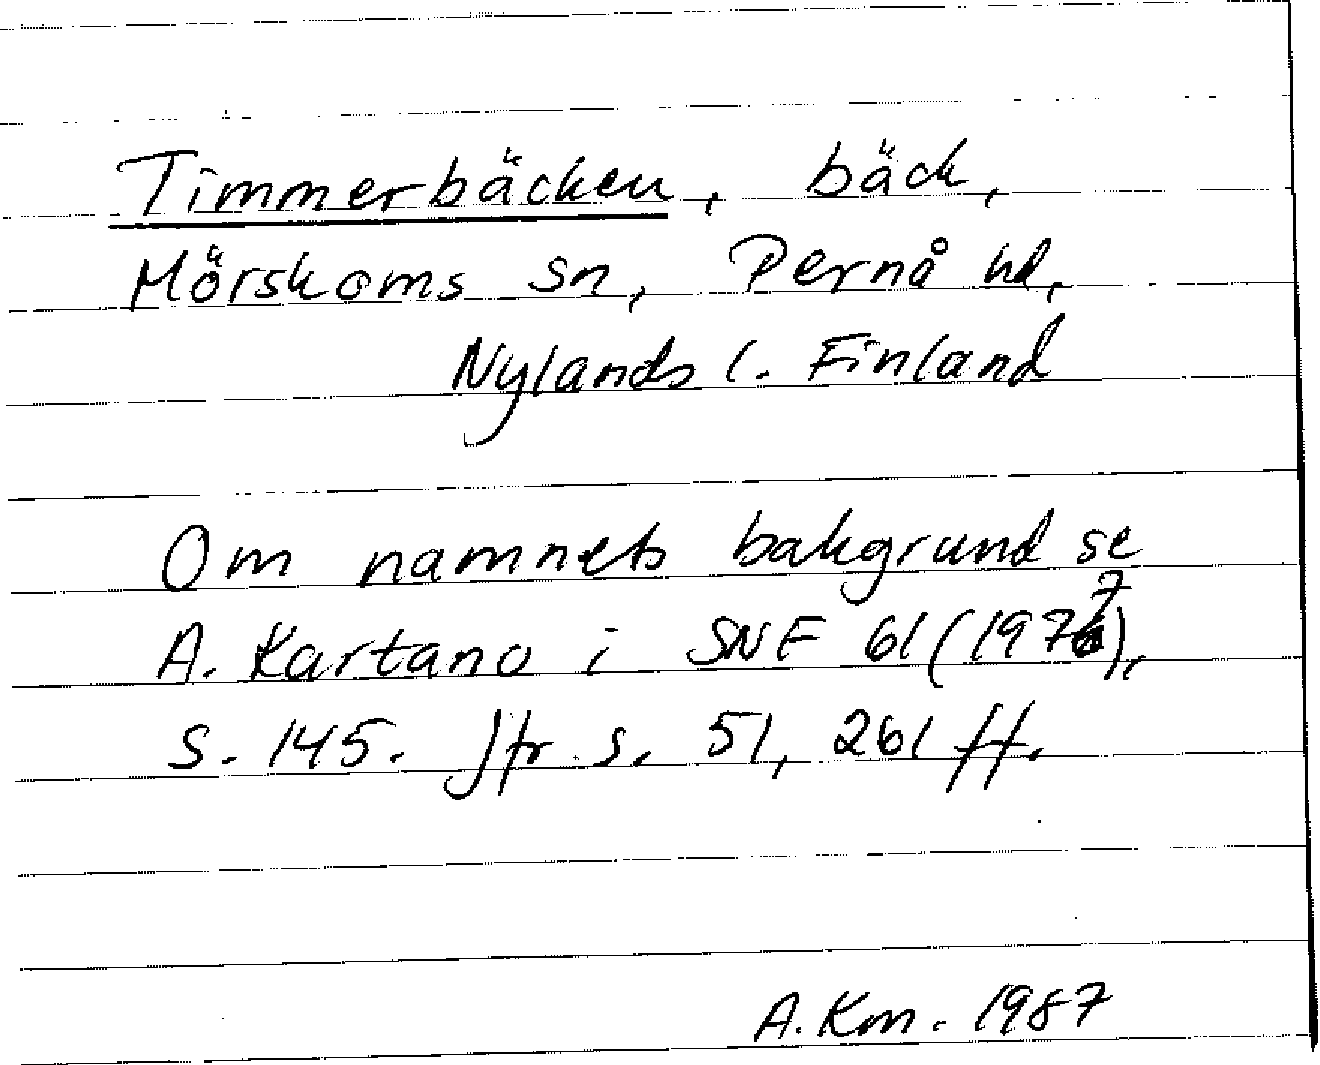 Timmerbäcken, bäck,
Mörskoms sn, Pernå hd,
Nylands l. Finland
Om namnets bakgrund se
A. Kartano i SNF 61 (1977),
s. 145. Jfr s. 51, 261 ff.
A. Km. 1987